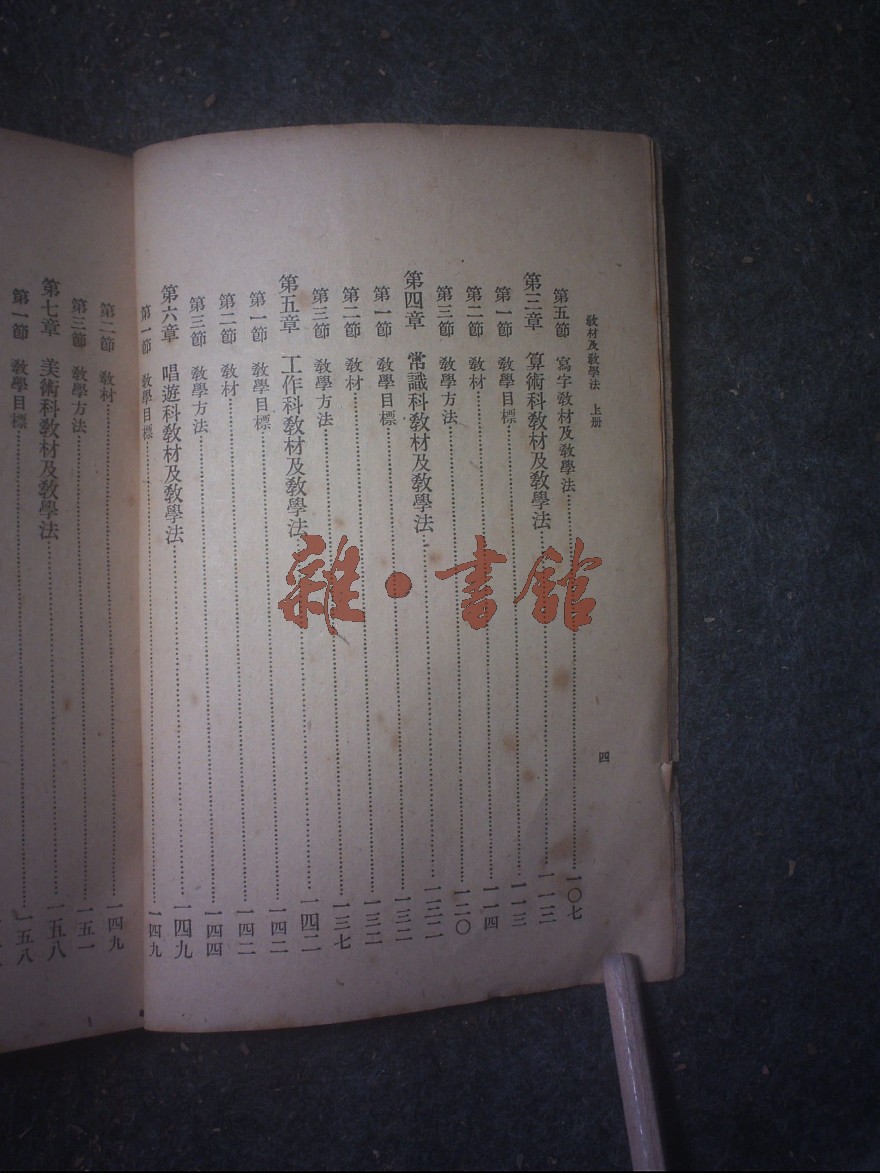 教材及敎學法 上册
四
第五節 寫字敎材及敎學法 一〇七
第三章 算術科敎材及敎學法 一一三
第一節 敎學目標 一一三
第二節 敎材 一一四
第三節 敎學方法 一二〇
第四章 常識科敎材及敎學法 一三二
第一節 敎學目標 一三二
第二節 敎材 一三二
第三節 敎學方法 一三七
第五章 工作科敎材及敎學法 一四二
第一節 敎學目標 一四二
第二節 敎材 一四二
第三節 敎學方法 一四四
第六章 唱遊科敎材及敎學法 一四九
第一節 敎學目標 一四九
第二節 敎材 一四九
第三節 敎學方法 一五一
第七章 美術科敎材及敎學法 一五八
第一節 敎學目標 一五八
雜·書館